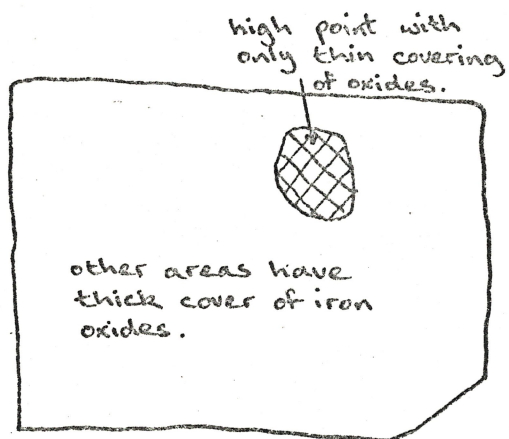 high point with
only thin covering
of oxides.
other areas have
thick cover of iron
oxides.